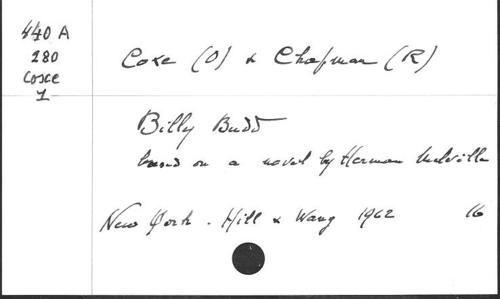 440 A
280
Coxe
1
Coxe (O) & Chapman (R)
Billy Budd
based on a novel by Herman Melville
New York. Hill & Wang 1962 16